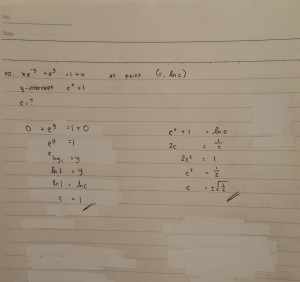 No.
Date
10. xe^-y + e^y = 1 + x at point (c, ln c)
y-intercept c² + 1
c = ?
0 + e^y = 1 + 0
e^y = 1
ln 1 = y
ln 1 = ln c
c = 1
c² + 1 = ln c
2c = 1/c
2c² = 1
c² = 1/2
c = ±√1/2